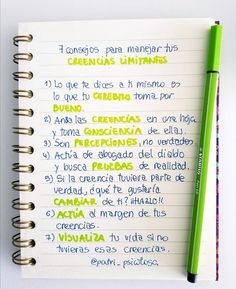 7 consejos para manejar tus
CREENCIAS LIMITANTES
1) Lo que te dices a ti mismo es
lo que tu CEREBRO toma por
BUENO.
2) Anota las CREENCIAS en una hoja
y toma CONSCIENCIA de ellas.
3) Son PERCEPCIONES, no verdades.
4) Actúa de abogado del diablo
y busca PRUEBAS de realidad.
5) Si la creencia tuviera parte de
verdad, ¿qué te gustaría
CAMBIAR de ti? ¡HAZLO!
6) ACTÚA al margen de tus
creencias.
7) VISUALIZA tu vida si no
tuvieras esas creencias.